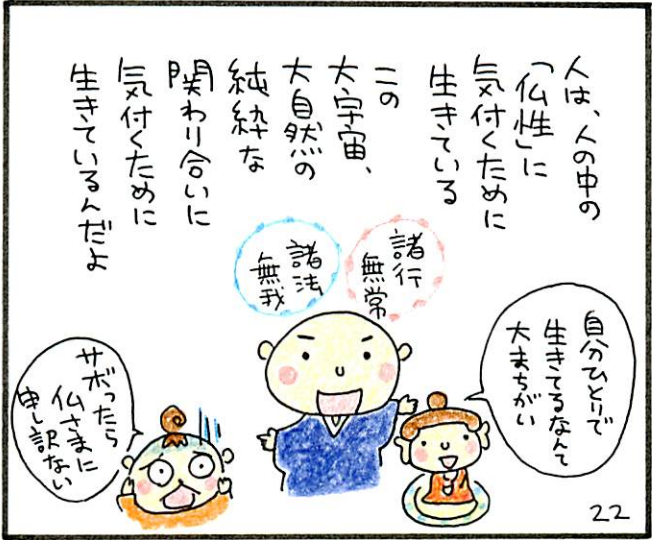 人は、人の中の
「仏性」に
気付くために
生きている
この
大宇宙、
大自然の
純粋な
関わり合いに
気付くために
生きているんだよ
諸行
無常
諸法
無我
自分ひとりで
生きてるなんて
大まちがい
サボったら
仏さまに
申し訳ない
22